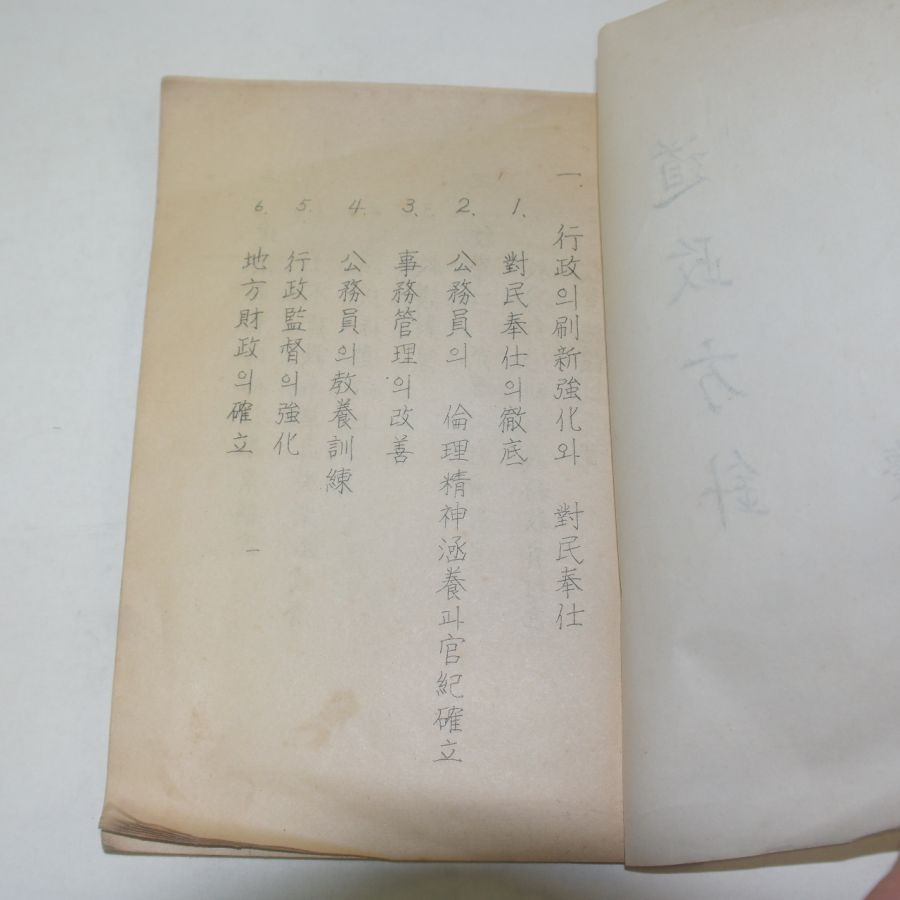 道政方針
一. 行政의刷新強化와 對民奉仕
1. 對民奉仕의徹底
2. 公務員의 倫理精神涵養과官紀確立
3. 事務管理의改善
4. 公務員의教養訓練
5. 行政監督의強化
6. 地方財政의確立
一